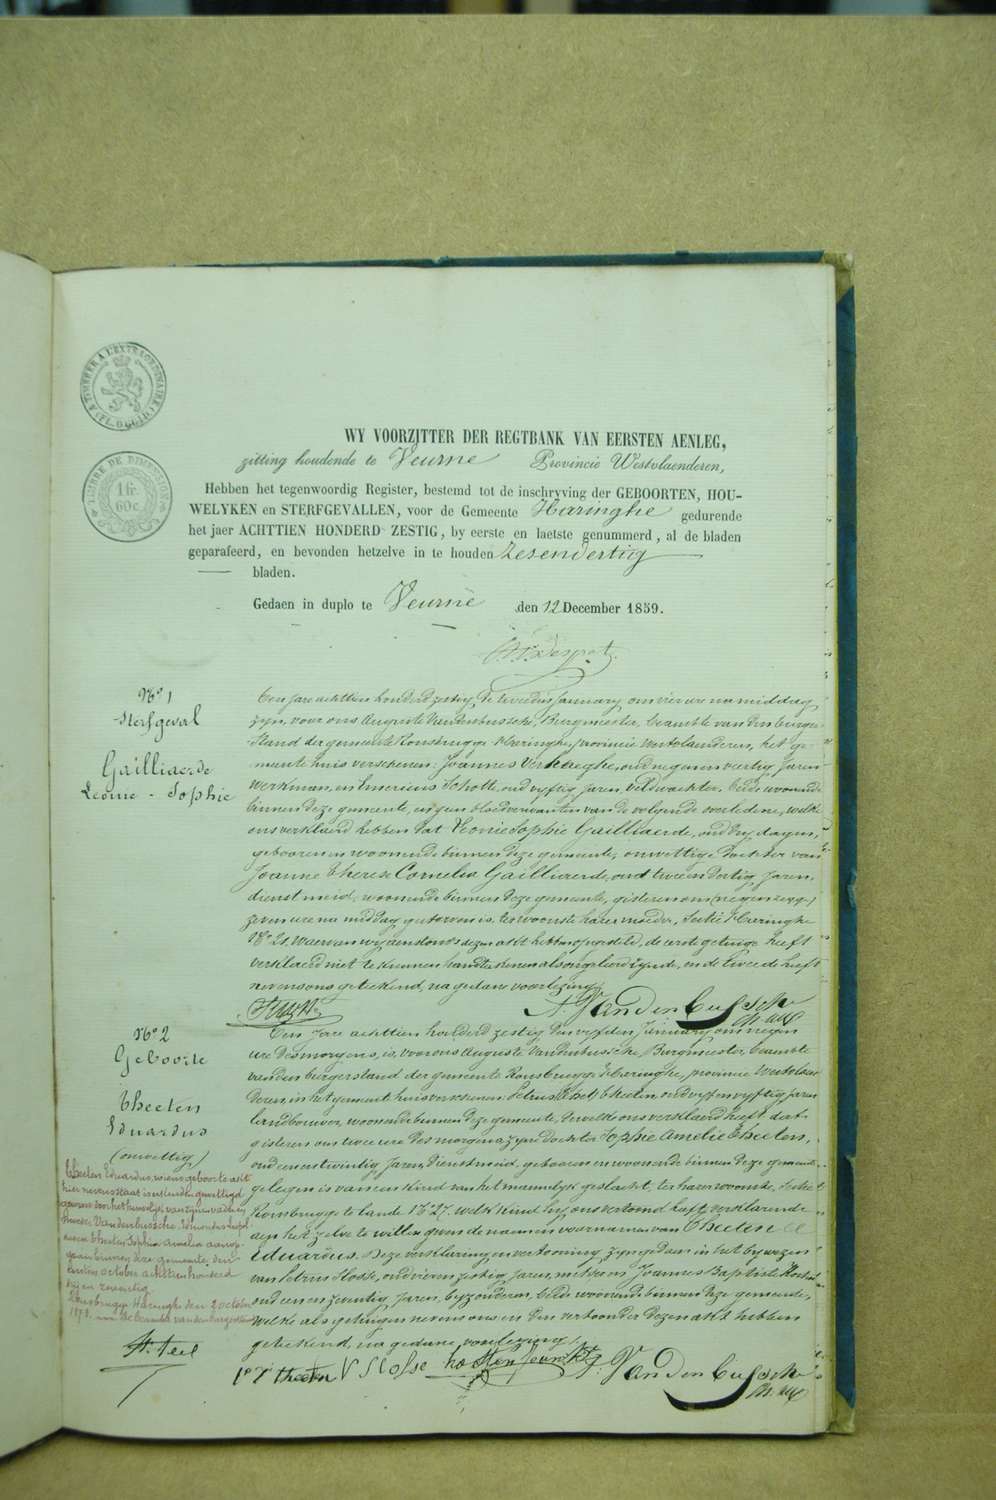 TIMBRE A L'EXTRAORDINAIRE
TIMBRE DE DIMENSION
1 fr.
60c.
WY VOORZITTER DER REGTBANK VAN EERSTEN AENLEG,
zitting houdende te Veurne Provincie Westvlaenderen,
Hebben het tegenwoordig Register, bestemd tot de inschryving der GEBOORTEN, HOU-
WELYKEN en STERFGEVALLEN, voor de Gemeente Haringhe gedurende
het jaer ACHTTIEN HONDERD ZESTIG, by eerste en laetste genummerd, al de bladen
geparafeerd, en bevonden hetzelve in te houden zesendertig
bladen.
Gedaen in duplo te Veurne den 12 December 1859.
N° 1
Sterfgeval
Gailliaerde
Leonie - Sophie
Een jare achttien honderd zestig, de tweeden January om vier ure namiddag
zyn, voor ons Auguste Vandenbussche, Burgmeester, beambte van den burger-
stand der gemeente Rousbrugge Haeringhe, provincie westvlaenderen, het ge-
meentehuis verschenen: Joannes Verhaeghe, oud negen en veertig Jaren
werkman, en Emerius Schotte, oud vyftig jaren, Veldwachter, beide wonende
binnen deze gemeente, en geen bloedverwanten van de volgende overledene, welke
ons verklaerd hebben dat Leonie Sophie Gailliaerde, oud dry dagen,
gebooren en woonende binnen deze gemeente, onwettige dochter van
Joanne Therese Cornelia Gailliaerde, oud twee en dertig jaren,
dienstmeid, woonende binnen deze gemeente, gisteren om
zeven ure na middag gestorven is, ter woonste harer moeder, Sectie Haeringhe
N° 21, waervan wy aenstonds dezen akt hebben opgesteld, de eerste getuige heeft
verklaerd niet te kunnen handteekenen als ongeleerd zynde, en de tweede heeft
nevens ons geteekend, na gedane voorlezing.
A. Vandenbussche
N° 2
Geboorte
Theeten
Eduardus
(onwettig)
Een jare achttien honderd zestig den vyfden January om negen
ure des morgens, is, voor ons Auguste Vandenbussche, Burgmeester, beambte
van den burgerstand der gemeente Rousbrugge Haeringhe, provincie Westvlaen-
deren, in het gemeentehuis verschenen: Petrus Theeten, oud vyf en vyftig jaren
landbouwer, woonende binnen deze gemeente, dewelke ons verklaerd heeft dat
gisteren om twee ure des morgens zyne dochter Sophie Amelie Theeten,
oud een en twintig jaren, dienstmeid, gebooren en woonende binnen deze gemeente
gelegen is van een kind van het mannelyk geslacht, ter harer woonste, Sectie
Rousbrugge te lande N° 27, welk kind hy ons vertoond heeft, verklarende
aen het zelve te willen geven de naem en voornaem van Theeten
Eduardus. Deze verklaring en vertooning, zyn gedaen in het bywezen
van Petrus Slosse, oud vier en zestig jaren, en Joannes Baptiste
oud een en zeventig jaren, byzonderen, beide woonende binnen deze gemeente,
welke als getuigen nevens ons en den vertooner dezen akt hebben
geteekend, na gedane voorlezing.
Theeten Eduardus, wiens geboorte akt
hier nevens staet is erkend en gewettigd
geweest door het huwelyk van zyne vader en
moeder, Vandenbussche
en Theeten Sophia Amelia aange-
gaen binnen deze gemeente, den
eersten october achttien honderd
dry en zeventig.
Rousbrugge Haringhe den 2 october
1873. De Beambte van den Burgerstand
Theeten V Slosse A. Vandenbussche